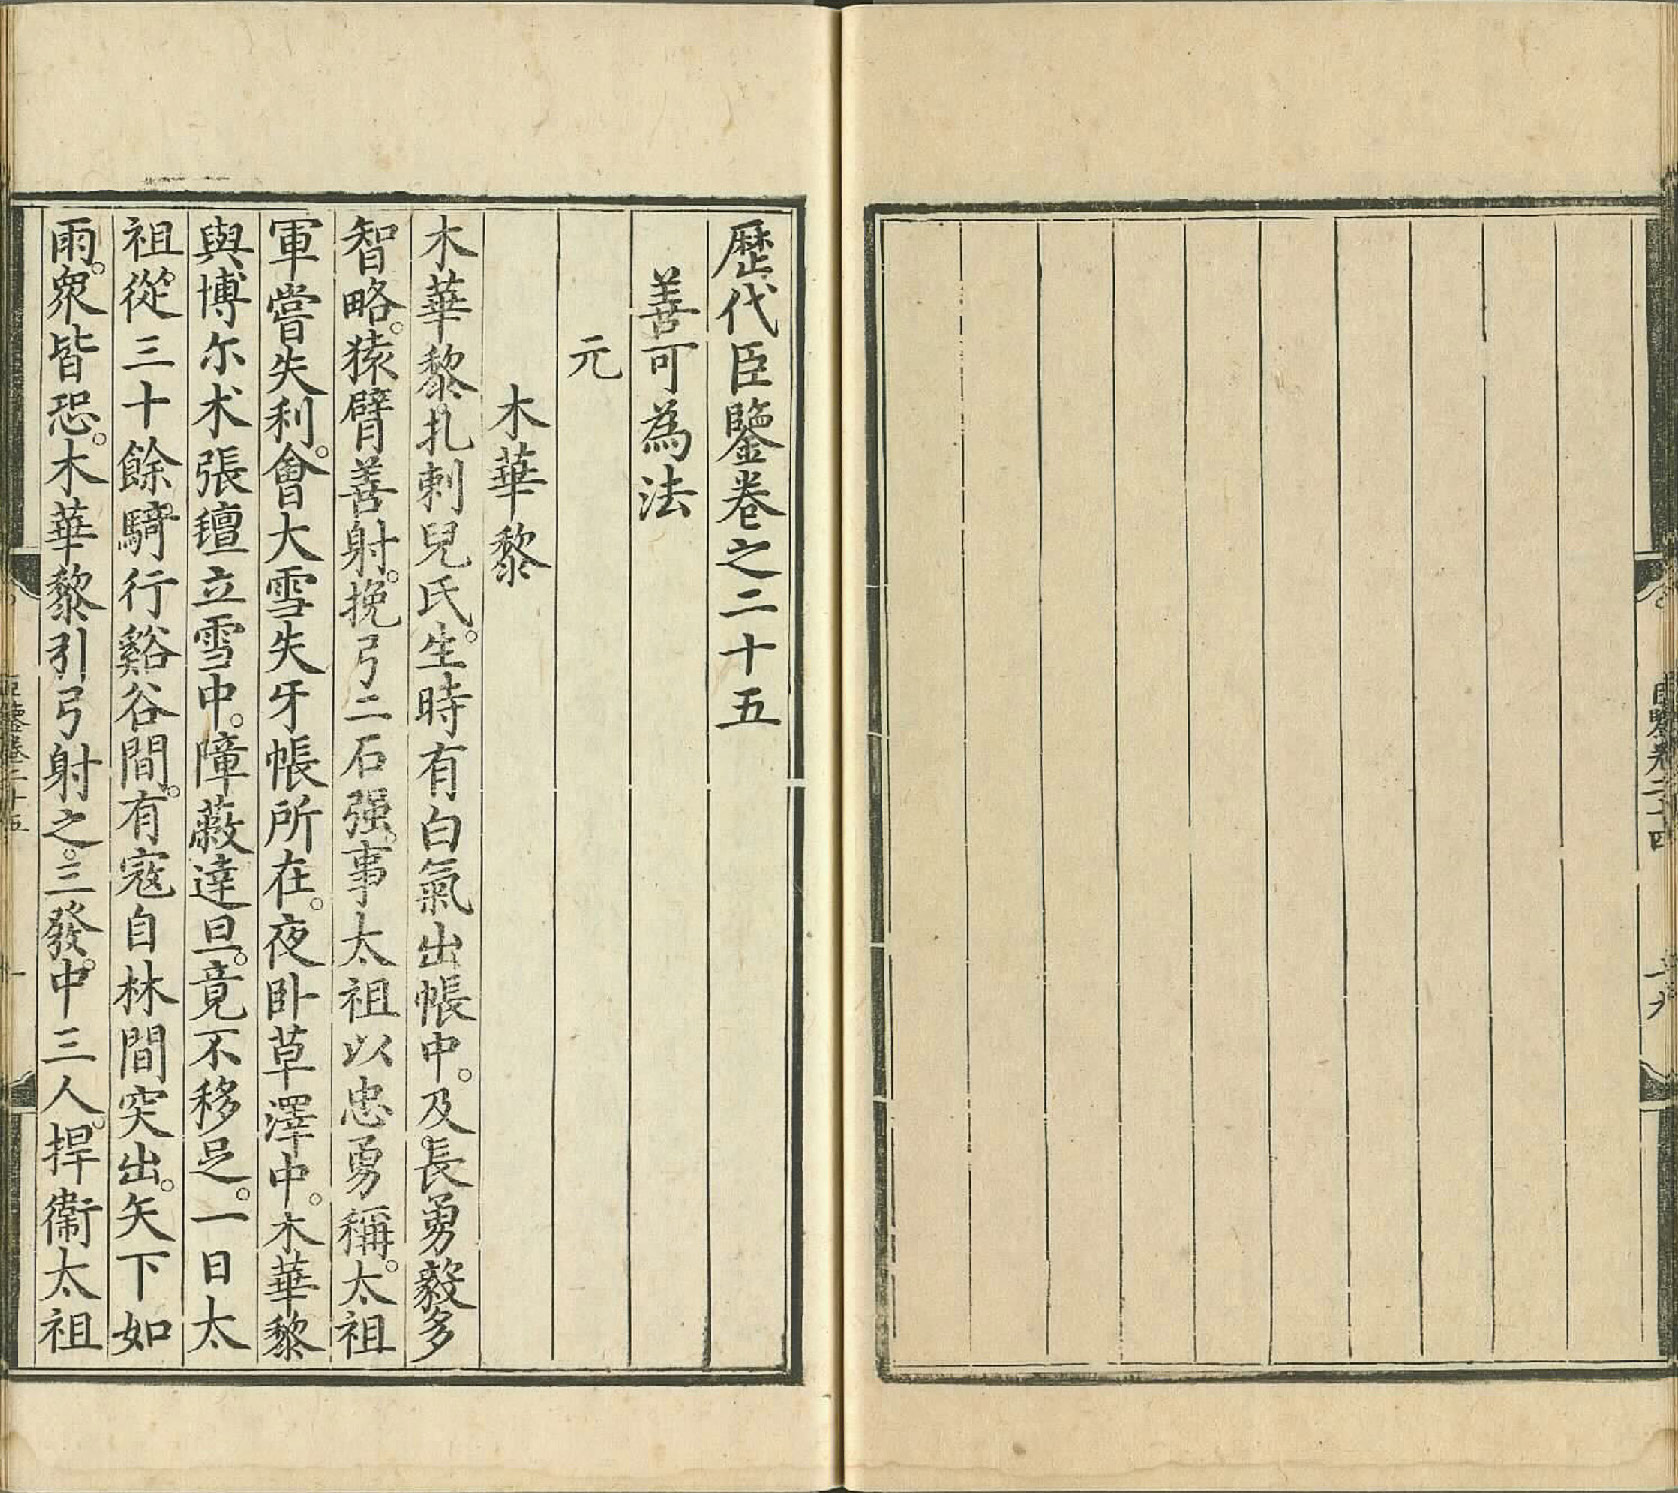 臣鑒卷二十四
歷代臣鑒卷之二十五
善可為法
元
木華黎
木華黎扎剌兒氏。生時有白氣出帳中。及長勇毅多
智略。猿臂善射。挽弓二石强。事太祖以忠勇稱。太祖
軍嘗失利。會大雪失牙帳所在。夜卧草澤中。木華黎
與博尔朮張氊立雪中。障蔽達旦。竟不移足。一日太
祖從三十餘騎行谿谷間。有寇自林間突出。矢下如
雨。衆皆恐。木華黎引弓射之。三發。中三人。捍衞太祖
臣鑒卷二十五
一